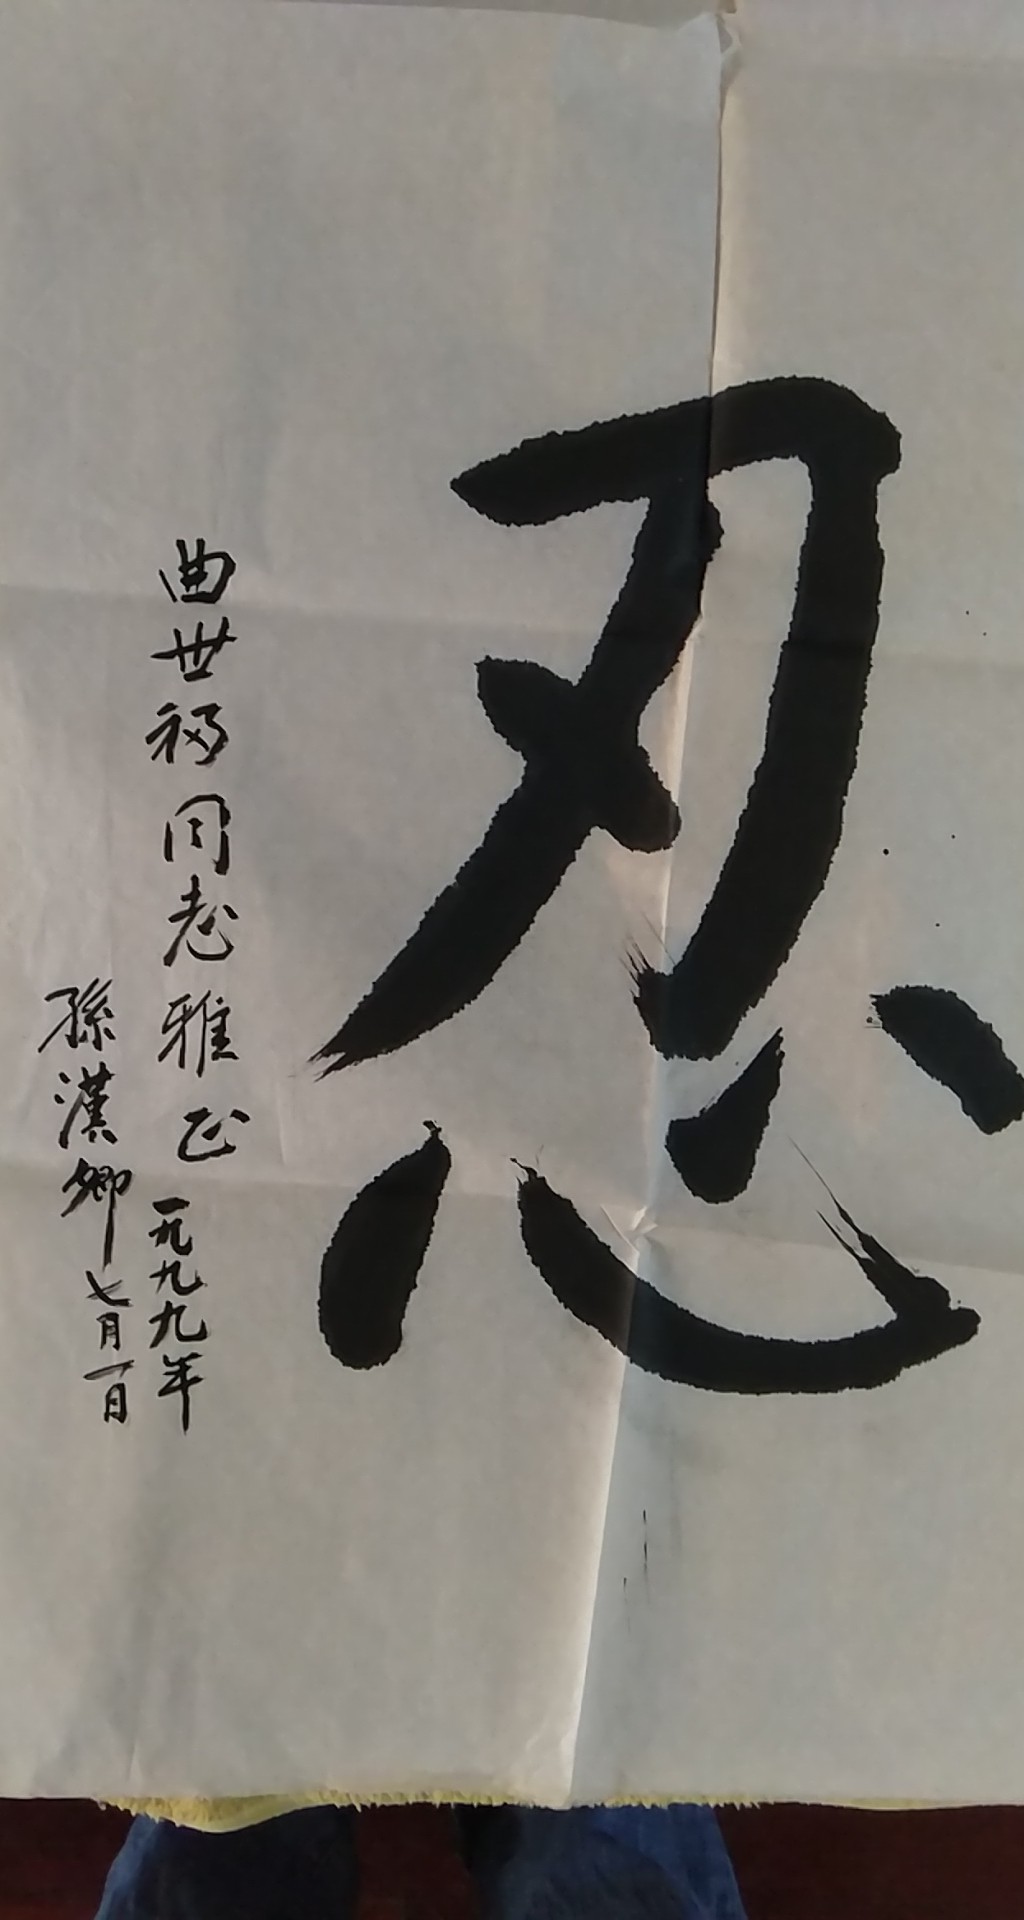 忍
曲世福同志雅正
一九九九年
孫漢卿
七月一日